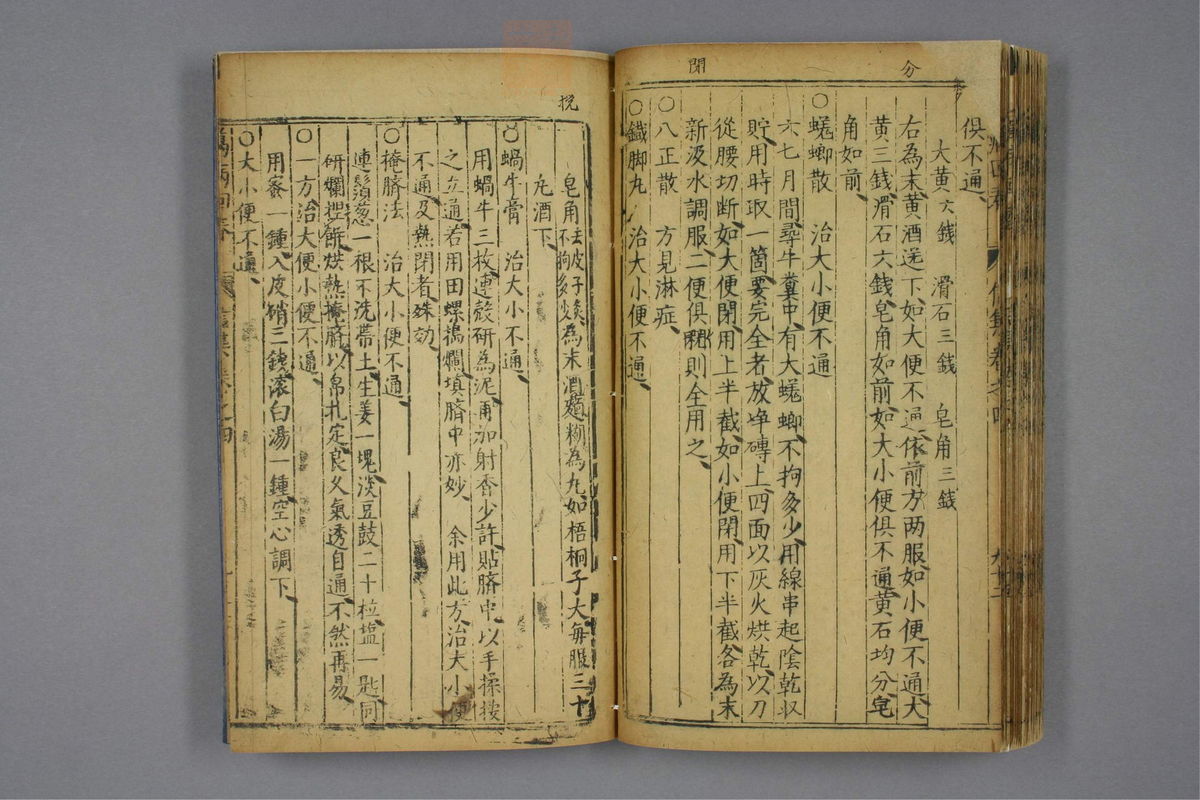 分
閉
俱不通
大黃六錢 滑石三錢 皂角三錢
右為末黃酒送下如大便不通依前方两服如小便不通大
黃三錢滑石六錢皂角如前如大小便俱不通黃石均分皂
角如前
○蜣蜋散 治大小便不通
六七月間尋牛糞中有大蜣蜋不拘多少用線串起陰乾収
貯用時取一箇要完全者放净磚上四面以灰火烘乾以刀
從腰切断如大便閉用上半截如小便閉用下半截各為末
新汲水調服二便俱閉則全用之
○八正散 方見淋症
○鐵脚丸 治大小便不通
挩
皂角去皮子不拘多少燒為末酒麵糊為丸如梧桐子大每服三十
丸酒下
○蝸牛膏 治大小不通
用蝸牛三枚連殼研為泥再加射香少許貼臍中以手揉挼
之立通若用田螺搗爛填臍中亦妙 余用此方治大小便
不通及熱閉者殊効
○掩臍法 治大小便不通
連鬚葱一根不洗帶土生姜一塊淡豆鼓二十粒塩一匙同
研爛捏餅烘熱掩臍以帛扎定良久氣透自通不然再易
○一方治大便小便不通
用蜜一鍾入皮硝三錢滚白湯一鍾空心調下
○大小便不通